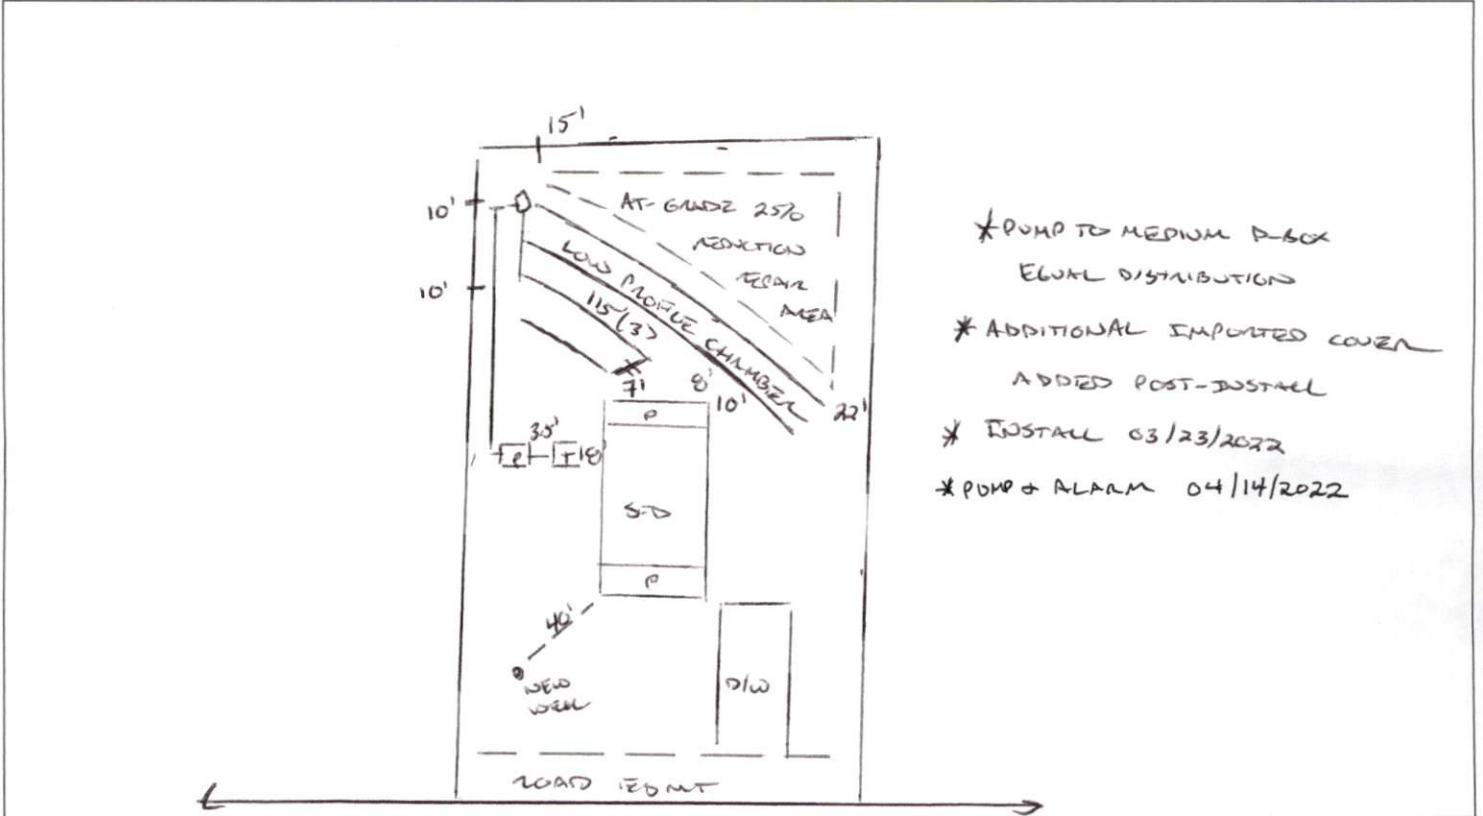 15'
10'
AT-GRADE 25%
REDUCTION
REPAIR
AREA
10'
LOW PROFILE CHAMBER
115' (3)
7'
8'
10'
22'
P
35'
P
T
18'
S-D
P
40'
NEW
WELL
D/W
ROAD ESMT
*PUMP TO MEDIUM D-BOX
EQUAL DISTRIBUTION
* ADDITIONAL IMPORTED COVER
ADDED POST-INSTALL
* INSTALL 03/23/2022
*PUMP & ALARM 04/14/2022